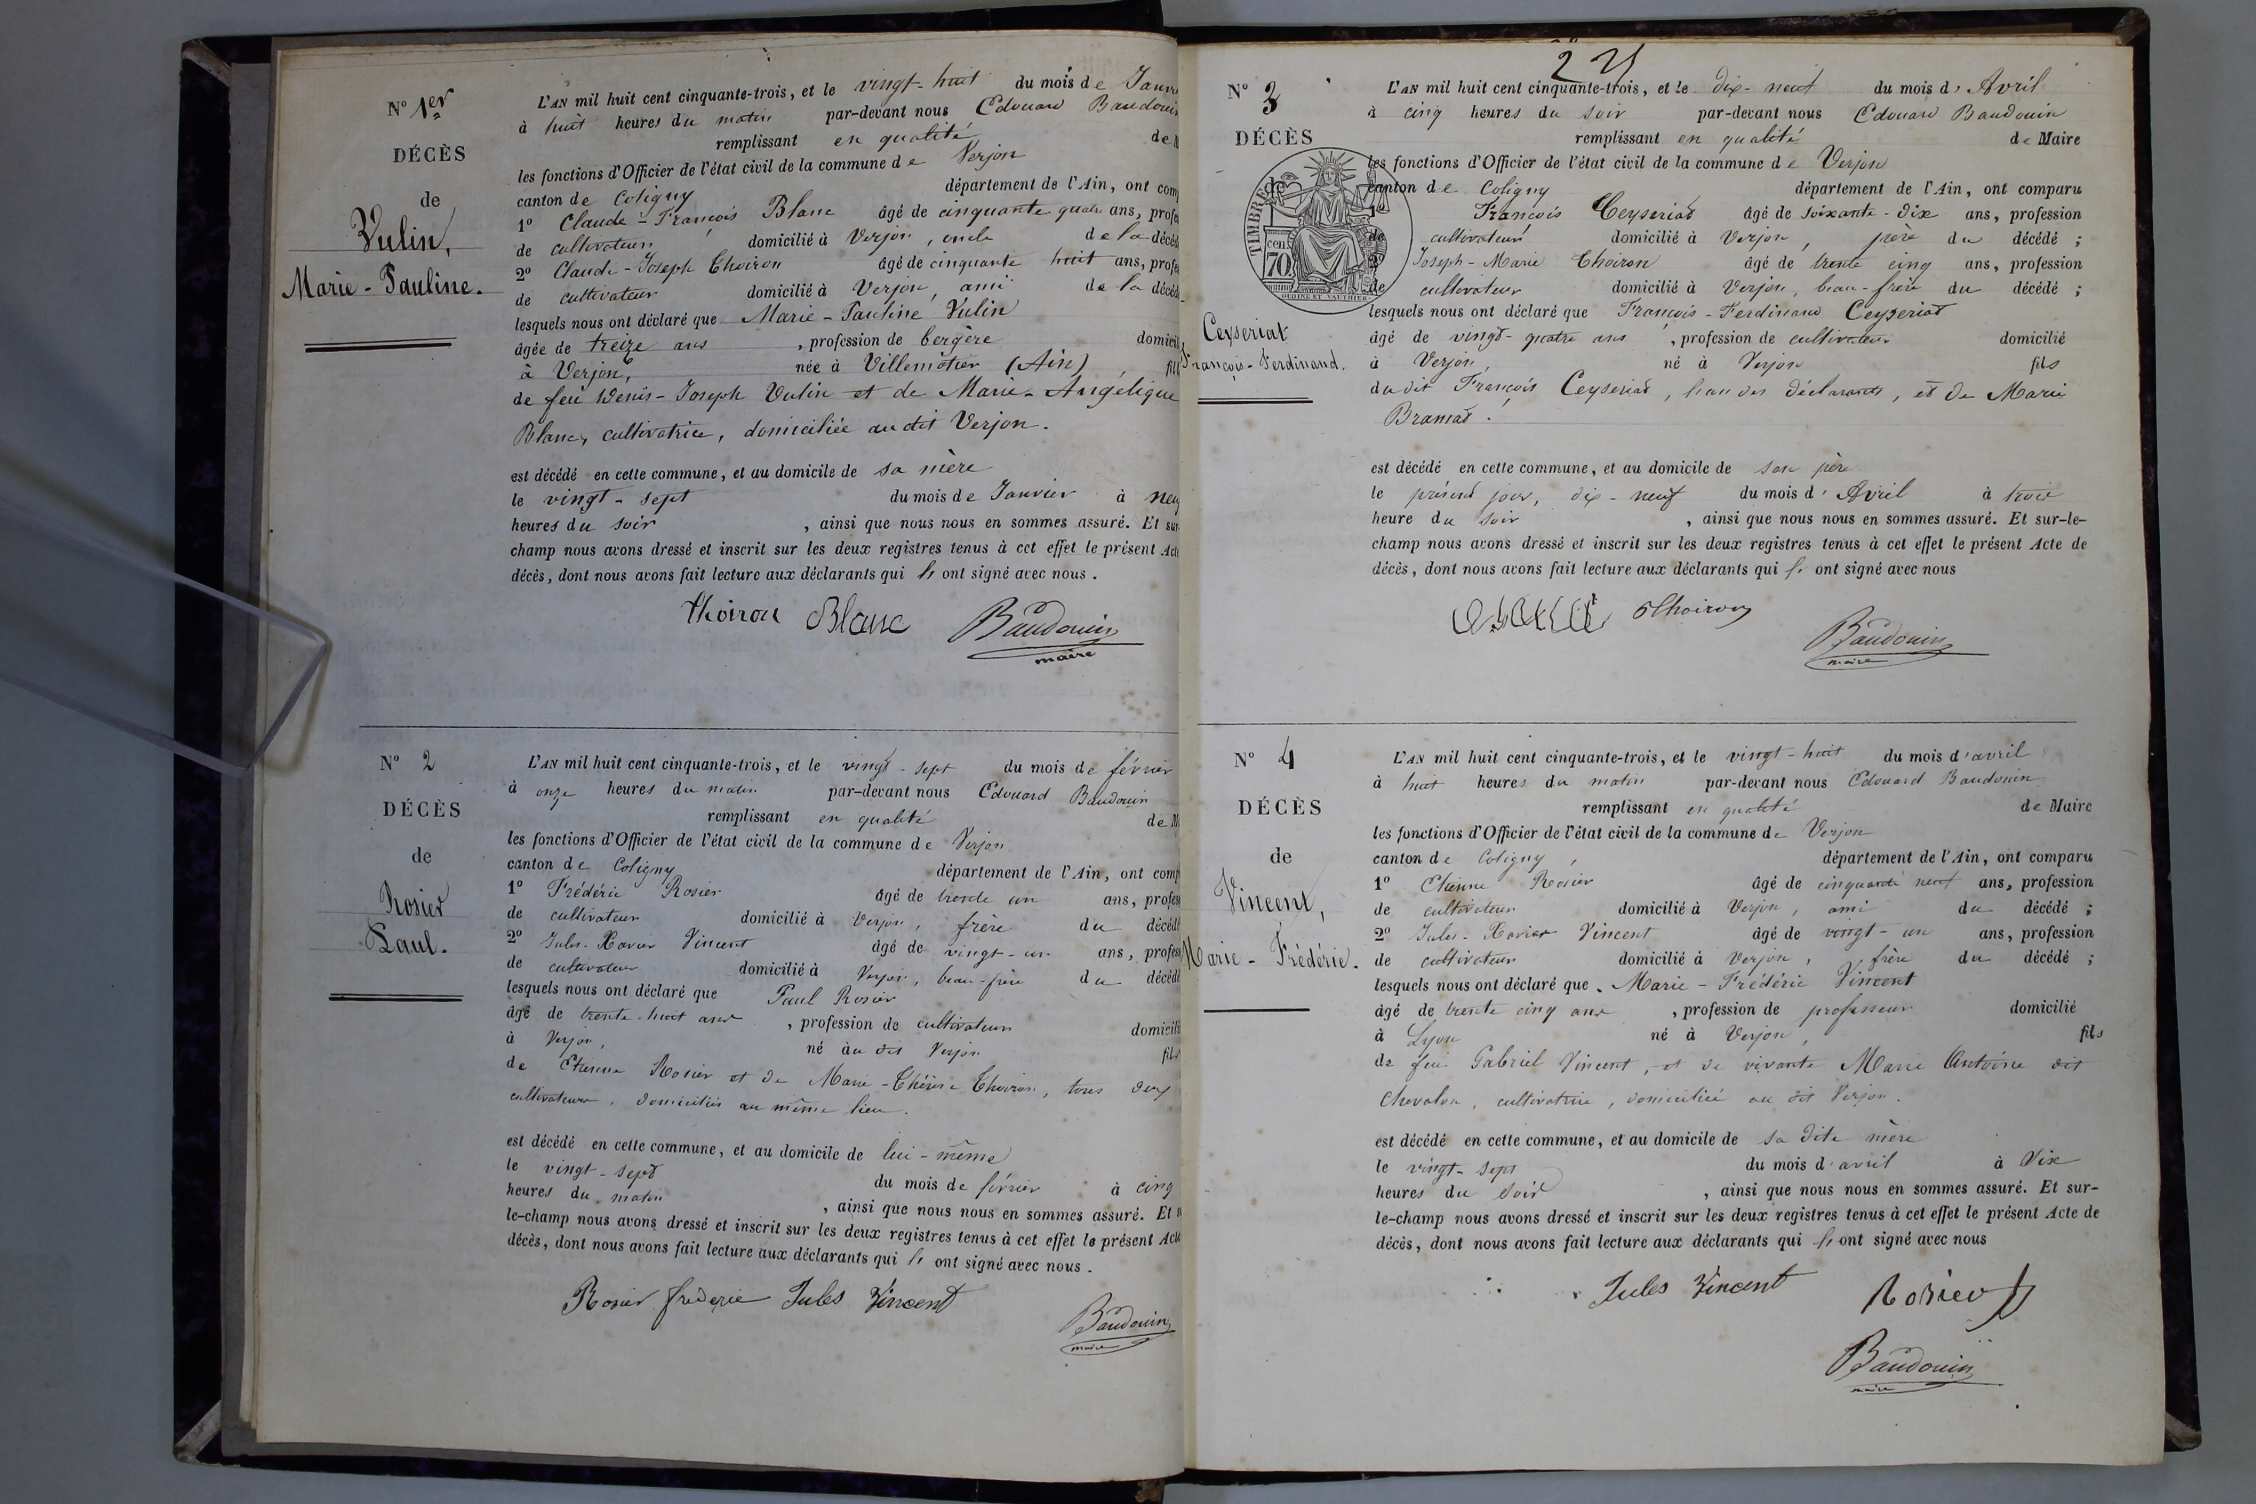 N° 1er
DÉCÈS
de
Vulin,
Marie-Pauline.
L'AN mil huit cent cinquante-trois, et le vingt-huit du mois de Janv
à huit heures du matin par-devant nous Edouard Baudouin
remplissant en qualité de M
les fonctions d'Officier de l'état civil de la commune de Verjon
canton de Coligny département de l'Ain, ont com
1° Claude-François Blanc âgé de cinquante quatre ans, profe
de cultivateur domicilié à Verjon, oncle de la décéd
2° Claude-Joseph Thoiron âgé de cinquante huit ans, profe
de cultivateur domicilié à Verjon, ami de la décéd
lesquels nous ont déclaré que Marie-Pauline Vulin
âgée de treize ans, profession de bergère domicil
à Verjon, née à Villemotier (Ain), fill
de feu Denis-Joseph Vulin et de Marie-Angélique
Blanc, cultivatrice, domiciliée au dit Verjon.
est décédé en cette commune, et au domicile de sa mère
le vingt-sept du mois de Janvier à neu
heures du soir, ainsi que nous nous en sommes assuré. Et sur
champ nous avons dressé et inscrit sur les deux registres tenus à cet effet le présent Acte
décès, dont nous avons fait lecture aux déclarants qui ont signé avec nous.
thoiron Blanc Baudouin
maire
N° 2
DÉCÈS
de
Rosier
Paul.
L'AN mil huit cent cinquante-trois, et le vingt-sept du mois de février
à onze heures du matin par-devant nous Edouard Baudouin
remplissant en qualité de M
les fonctions d'Officier de l'état civil de la commune de Verjon
canton de Coligny département de l'Ain, ont comp
1° Frédéric Rosier âgé de trente un ans, profess
de cultivateur domicilié à Verjon, frère du décédé
2° Jules-Xavier Vincent âgé de vingt-un ans, profess
de cultivateur domicilié à Verjon, beau-frère du décédé
lesquels nous ont déclaré que Paul Rosier
âgé de trente-huit ans, profession de cultivateur domicili
à Verjon, né au dit Verjon fils
de Etienne Rosier et de Marie-Thérèse Thoiron, tous deux
cultivateurs, domiciliés au même lieu.
est décédé en cette commune, et au domicile de lui-même
le vingt-sept du mois de février à cinq
heures du matin, ainsi que nous nous en sommes assuré. Et s
le-champ nous avons dressé et inscrit sur les deux registres tenus à cet effet le présent Acte
décès, dont nous avons fait lecture aux déclarants qui ont signé avec nous.
Rosier frederic Jules Vincent
Baudouin
maire
N° 3
DÉCÈS
de
TIMBRE
cen 70
OUDINE ET VAUTHIER
Ceyseriat
François-Ferdinand.
L'AN mil huit cent cinquante-trois, et le dix-neuf du mois d'Avril
à cinq heures du soir par-devant nous Edouard Baudouin
remplissant en qualité de Maire
les fonctions d'Officier de l'état civil de la commune de Verjon
canton de Coligny département de l'Ain, ont comparu
François Ceyseriat âgé de soixante-dix ans, profession
de cultivateur domicilié à Verjon, père du décédé;
Joseph-Marie Thoiron âgé de trente cinq ans, profession
de cultivateur domicilié à Verjon, beau-frère du décédé;
lesquels nous ont déclaré que François-Ferdinand Ceyseriat
âgé de vingt-quatre ans, profession de cultivateur domicilié
à Verjon, né à Verjon fils
du dit François Ceyseriat, l'un des déclarants, et de Marie
Bramas.
est décédé en cette commune, et au domicile de son père
le présent jour, dix-neuf du mois d'Avril à trois
heure du soir, ainsi que nous nous en sommes assuré. Et sur-le-
champ nous avons dressé et inscrit sur les deux registres tenus à cet effet le présent Acte de
décès, dont nous avons fait lecture aux déclarants qui ont signé avec nous
Thoiron
Baudouin
maire
N° 4
DÉCÈS
de
Vincent,
Marie-Frédéric.
L'AN mil huit cent cinquante-trois, et le vingt-huit du mois d'avril
à huit heures du matin par-devant nous Edouard Baudouin
remplissant en qualité de Maire
les fonctions d'Officier de l'état civil de la commune de Verjon
canton de Coligny, département de l'Ain, ont comparu
1° Etienne Rosier âgé de cinquante neuf ans, profession
de cultivateur domicilié à Verjon, ami du décédé;
2° Jules-Xavier Vincent âgé de vingt-un ans, profession
de cultivateur domicilié à Verjon, frère du décédé;
lesquels nous ont déclaré que Marie-Frédéric Vincent
âgé de trente cinq ans, profession de professeur domicilié
à Lyon né à Verjon, fils
de feu Gabriel Vincent, et de vivante Marie Antoine dit
Chevalon, cultivatrice, domiciliée au dit Verjon.
est décédé en cette commune, et au domicile de sa dite mère
le vingt-sept du mois d'avril à dix
heures du soir, ainsi que nous nous en sommes assuré. Et sur-
le-champ nous avons dressé et inscrit sur les deux registres tenus à cet effet le présent Acte de
décès, dont nous avons fait lecture aux déclarants qui ont signé avec nous
Jules Vincent Rosier
Baudouin
maire